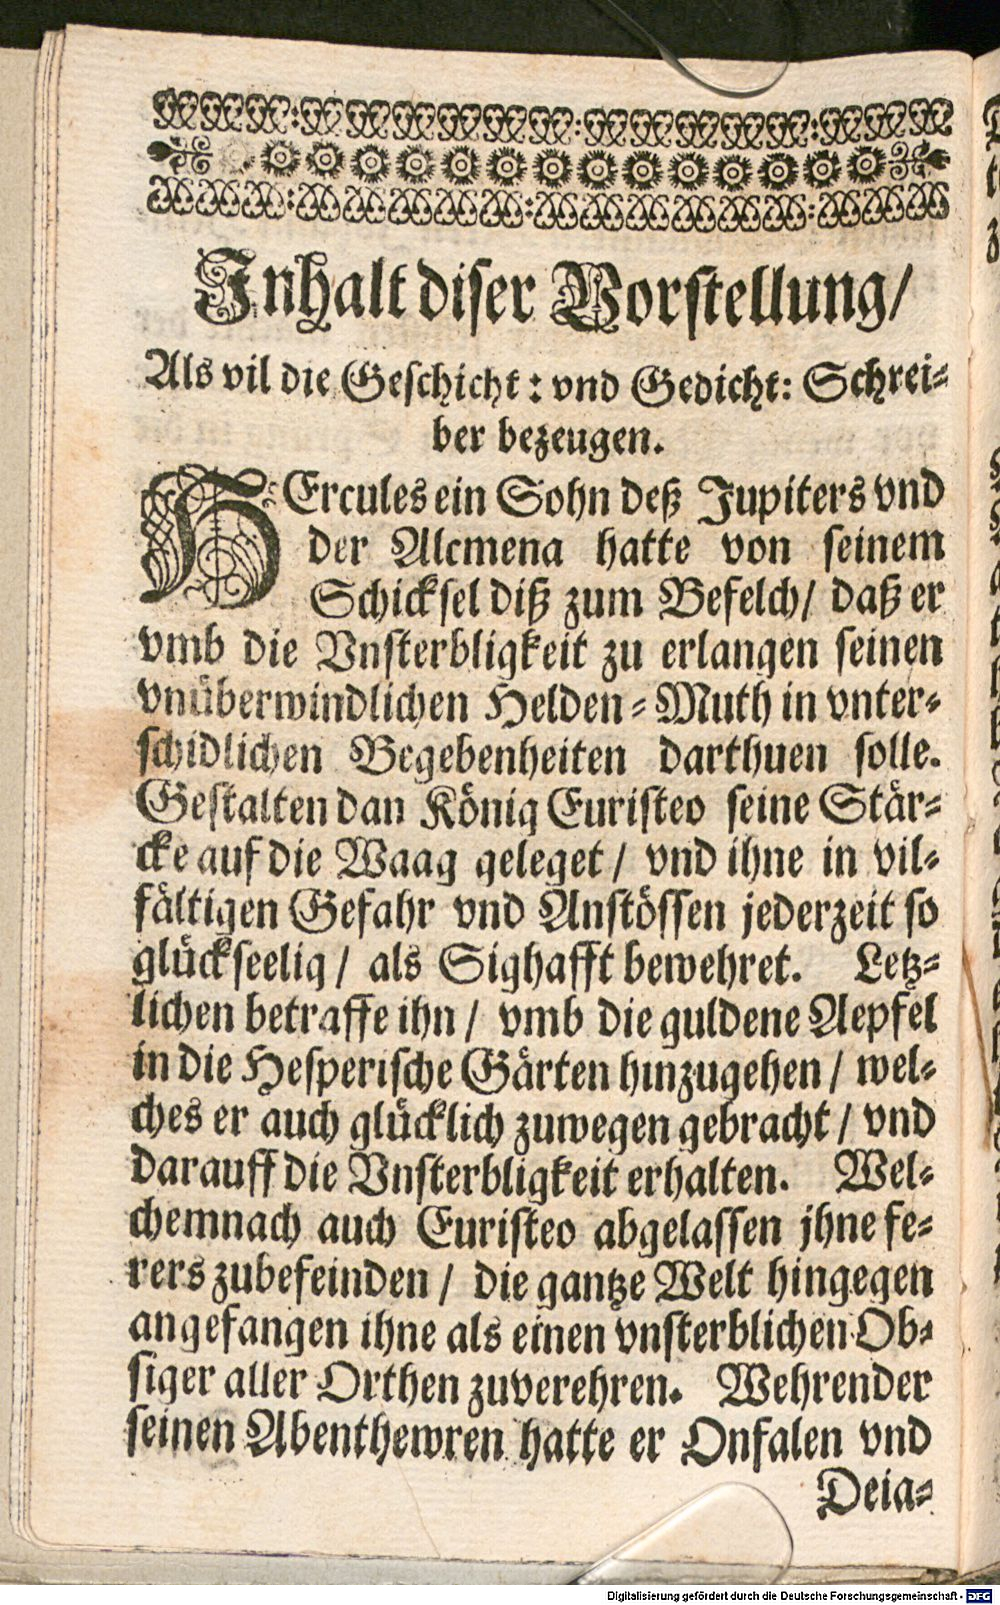 Inhalt diser Vorstellung/
Als vil die Geschicht: vnd Gedicht: Schrei-
ber bezeugen.
HErcules ein Sohn deß Jupiters vnd
der Alcmena hatte von seinem
Schicksel diß zum Befelch/ daß er
vmb die Vnsterbligkeit zu erlangen seinen
vnüberwindlichen Helden-Muth in vnter-
schidlichen Begebenheiten darthuen solle.
Gestalten dan König Euristeo seine Stär-
cke auf die Waag geleget/ vnd ihne in vil-
fältigen Gefahr vnd Anstössen jederzeit so
glückseelig/ als Sighafft bewehret. Letz-
lichen betraffe ihn/ vmb die guldene Aepfel
in die Hesperische Gärten hinzugehen/ wel-
ches er auch glücklich zuwegen gebracht/ vnd
darauff die Vnsterbligkeit erhalten. Wel-
chemnach auch Euristeo abgelassen jhne fe-
rers zubefeinden/ die gantze Welt hingegen
angefangen ihne als einen vnsterblichen Ob-
siger aller Orthen zuverehren. Wehrender
seinen Abenthewren hatte er Onfalen vnd
Deia-
Digitalisierung gefördert durch die Deutsche Forschungsgemeinschaft - DFG